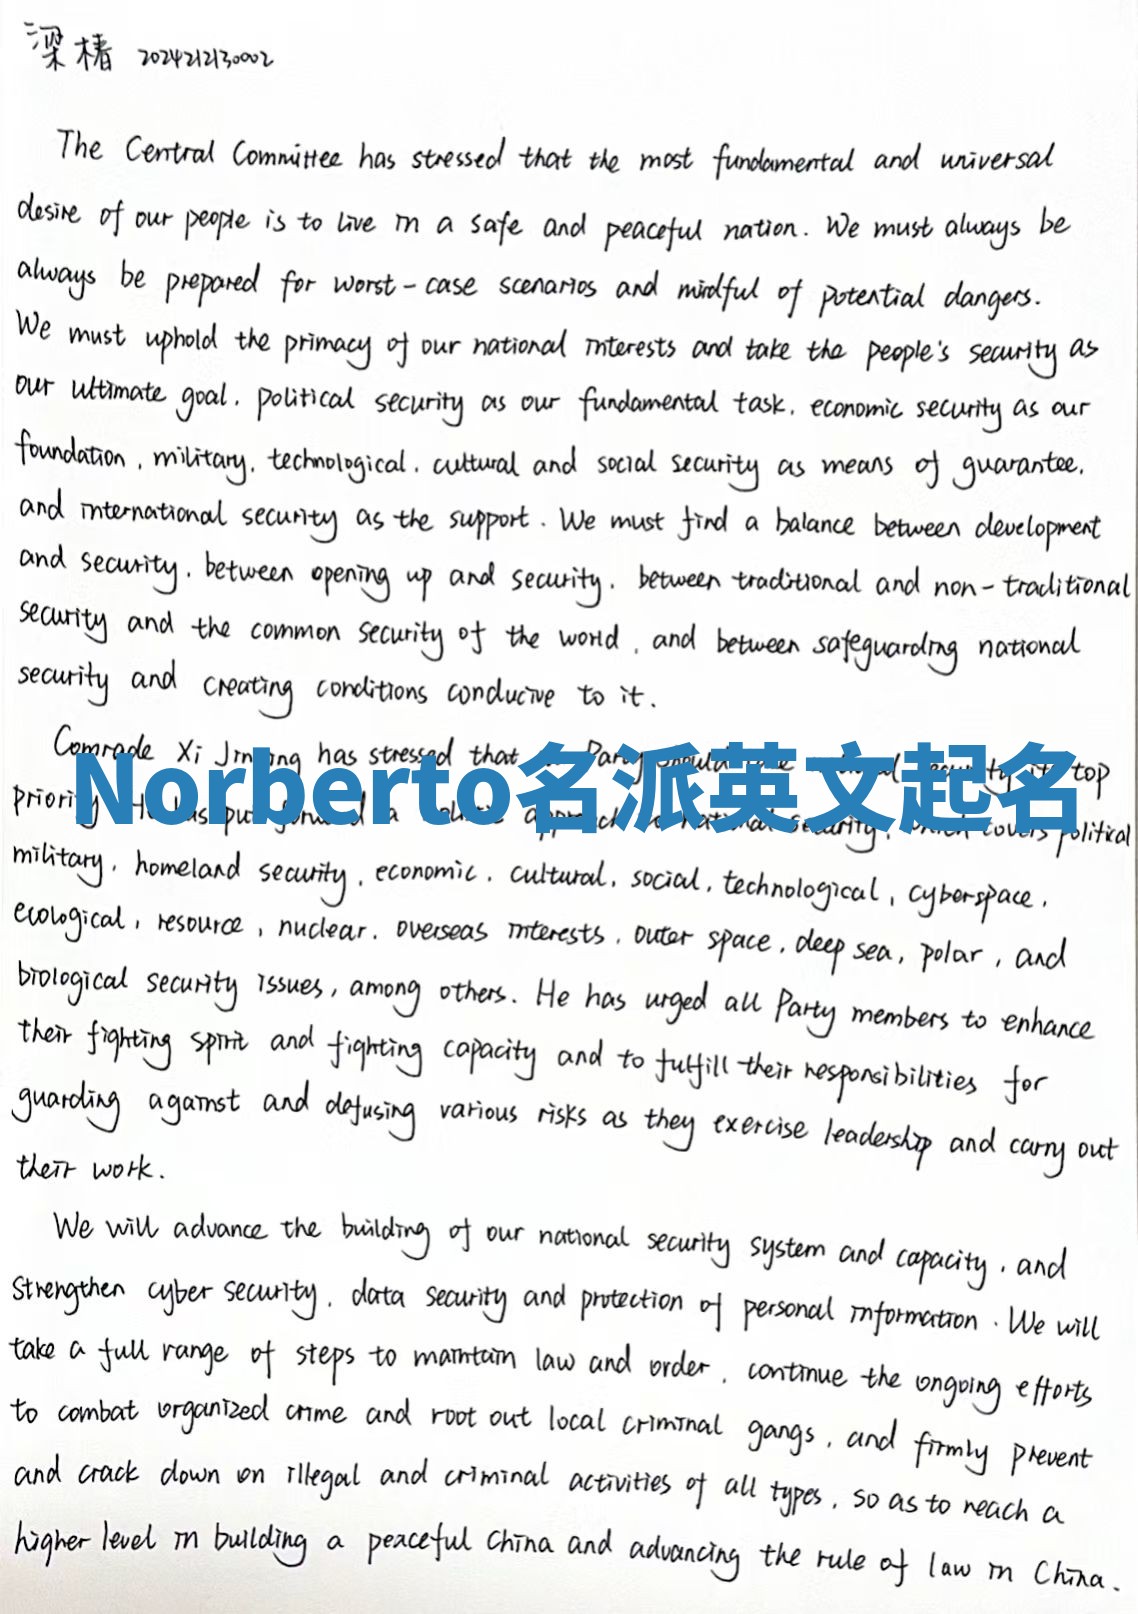 梁椿 2024212130002
The Central Committee has stressed that the most fundamental and universal
desire of our people is to live in a safe and peaceful nation. We must always be
always be prepared for worst-case scenarios and mindful of potential dangers.
We must uphold the primacy of our national interests and take the people's security as
our ultimate goal, political security as our fundamental task, economic security as our
foundation, military, technological, cultural and social security as means of guarantee,
and international security as the support. We must find a balance between development
and security, between opening up and security, between traditional and non-traditional
security and the common security of the world, and between safeguarding national
security and creating conditions conducive to it.
Comrade Xi Jinping has stressed that Party should top
Norberto名派英文起名
priority. He has put forward a approach to national security, which covers political
military, homeland security, economic, cultural, social, technological, cyberspace,
ecological, resource, nuclear, overseas interests, outer space, deep sea, polar, and
biological security issues, among others. He has urged all Party members to enhance
their fighting spirit and fighting capacity and to fulfill their responsibilities for
guarding against and defusing various risks as they exercise leadership and carry out
their work.
We will advance the building of our national security system and capacity, and
strengthen cyber security, data security and protection of personal information. We will
take a full range of steps to maintain law and order, continue the ongoing efforts
to combat organized crime and root out local criminal gangs, and firmly prevent
and crack down on illegal and criminal activities of all types, so as to reach a
higher level in building a peaceful China and advancing the rule of law in China.